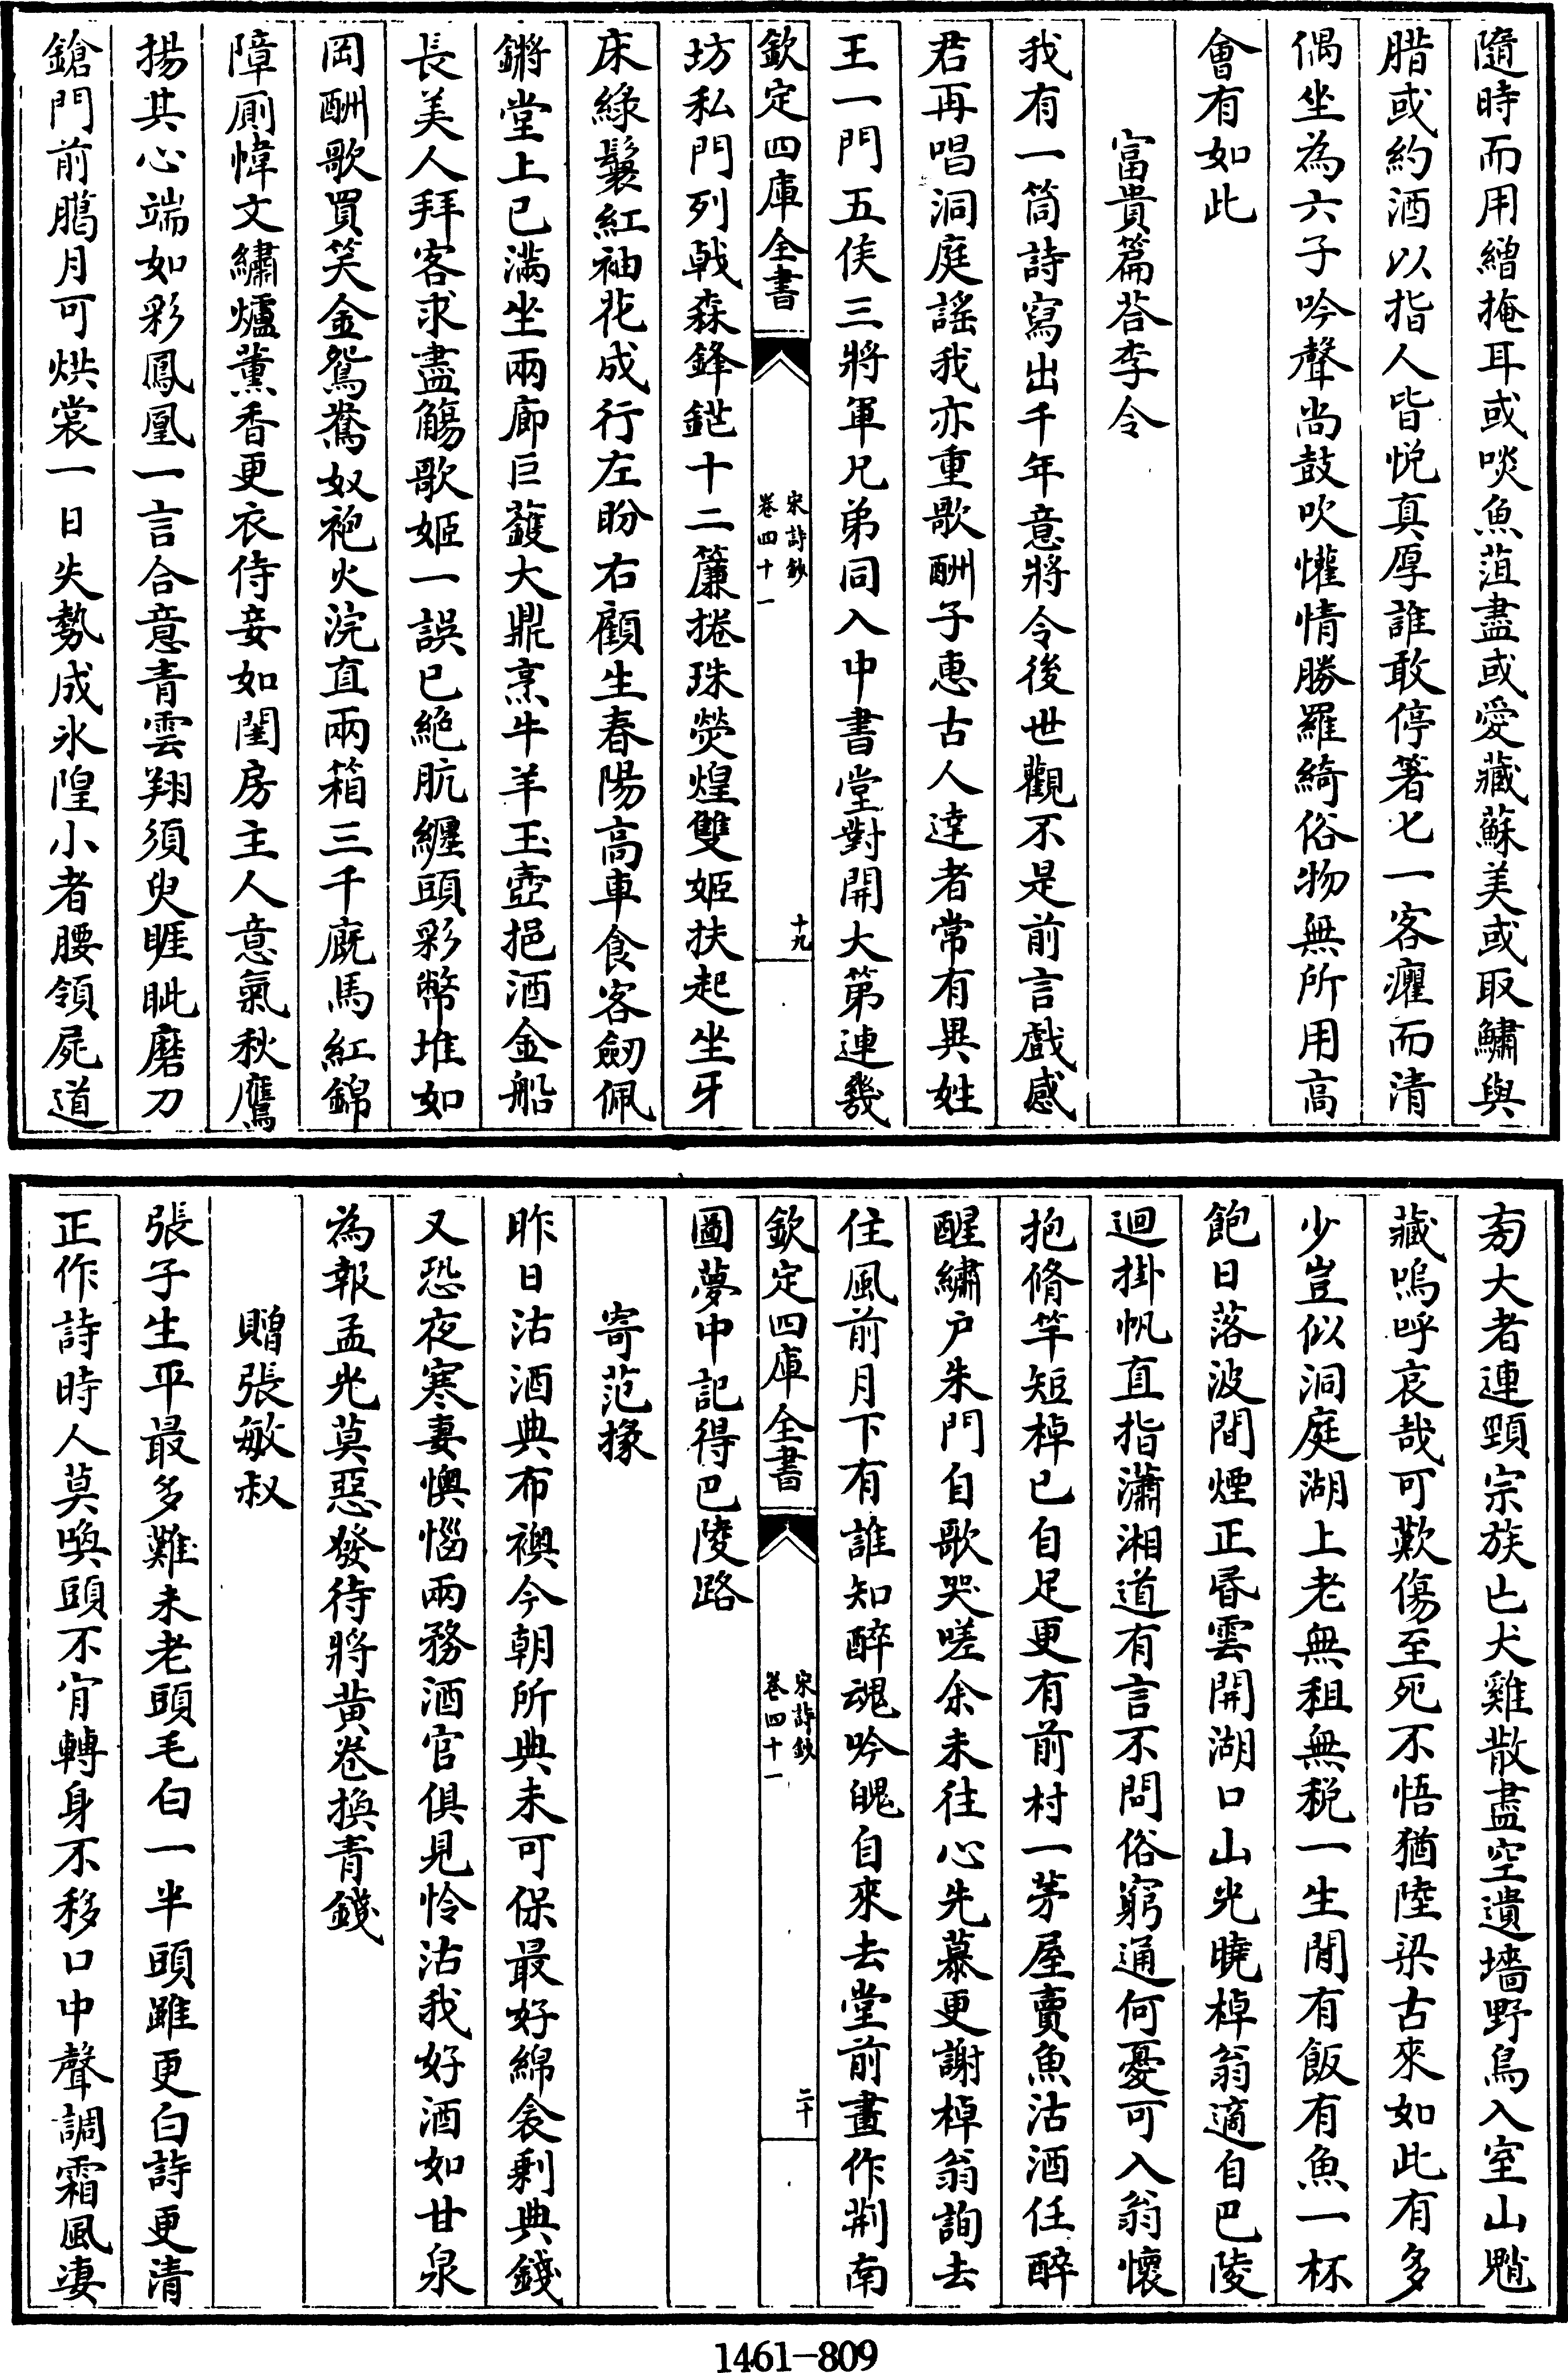 隨時而用繒掩耳或啖魚菹盡或愛藏蘇美或取鱐與
腊或約酒以指人皆悅真厚誰敢停箸匕一客癯而清
偶坐為六子吟聲尚鼓吹懽情勝羅綺俗物無所用高
會有如此
富貴篇荅李令
我有一筒詩寫出千年意將令後世觀不是前言戲感
君再唱洞庭謠我亦重歌酬子惠古人達者常有異姓
王一門五侯三將軍兄弟同入中書堂對開大第連幾
欽定四庫全書
宋詩鈔
卷四十一
十九
坊私門列戟森鋒鋩十二簾捲珠熒煌雙姬扶起坐牙
床綠鬟紅袖花成行左盼右顧生春陽高車食客劒佩
鏘堂上已滿坐兩廊巨鑊大鼎烹牛羊玉壺挹酒金船
長美人拜客求盡觴歌姬一誤已絕肮纏頭彩幣堆如
岡酬歌買笑金鴛鴦奴袍火浣直兩箱三千廐馬紅錦
障廁幃文繡爐薰香更衣侍妾如閨房主人意氣秋鷹
揚其心端如彩鳳凰一言合意青雲翔須臾睚眦磨刀
鎗門前臈月可烘裳一日失勢成氷隍小者腰領屍道
旁大者連頸宗族亡犬雞散盡空遺墻野鳥入室山魈
藏嗚呼哀哉可歎傷至死不悟猶陸梁古來如此有多
少豈似洞庭湖上老無租無稅一生閒有飯有魚一杯
飽日落波間煙正昏雲開湖口山光曉棹翁適自巴陵
迴掛帆直指瀟湘道有言不問俗窮通何憂可入翁懷
抱脩竿短棹已自足更有前村一茅屋賣魚沽酒任醉
醒繡户朱門自歌哭嗟余未往心先慕更謝棹翁詢去
住風前月下有誰知醉魂吟魄自來去堂前畫作荆南
欽定四庫全書
宋詩鈔
卷四十一
二十
圖夢中記得巴陵路
寄范掾
昨日沽酒典布襖今朝所典未可保最好綿衾剩典錢
又恐夜寒妻懊惱兩務酒官俱見怜沽我好酒如甘泉
為報孟光莫惡發待將黄卷換青錢
贈張敏叔
張子生平最多難未老頭毛白一半頭雖更白詩更清
正作詩時人莫喚頭不肎轉身不移口中聲調霜風凄
1461-809